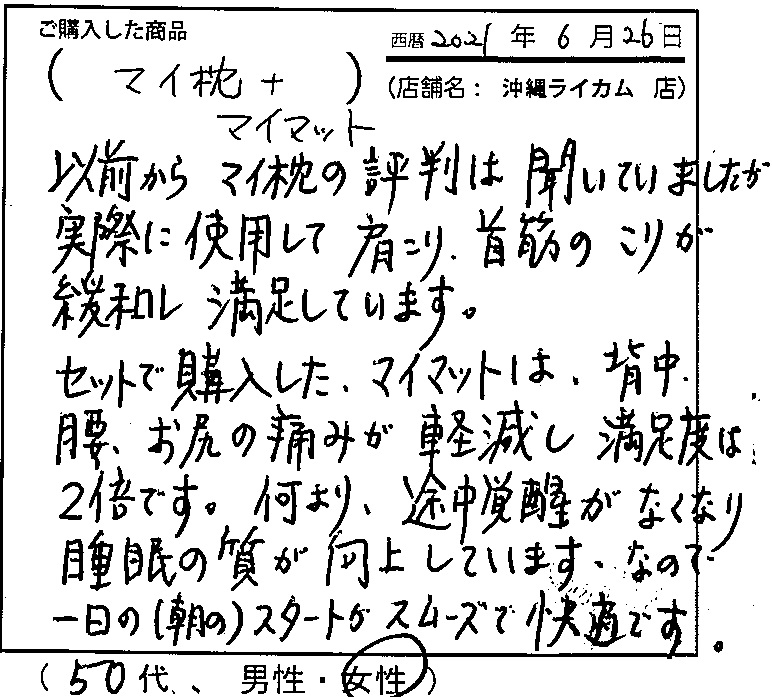 ご購入した商品
西暦2021年6月26日
(マイ枕+
マイマット)
(店舗名:沖縄ライカム 店)
以前からマイ枕の評判は聞いていましたが
実際に使用して肩こり、首筋のこりが
緩和し満足しています。
セットで購入した、マイマットは、背中、
腰、お尻の痛みが軽減し満足度は
2倍です。何より、途中覚醒がなくなり
睡眠の質が向上しています、なので
一日の(朝の)スタートがスムーズで快適です。
(50代、男性・女性)